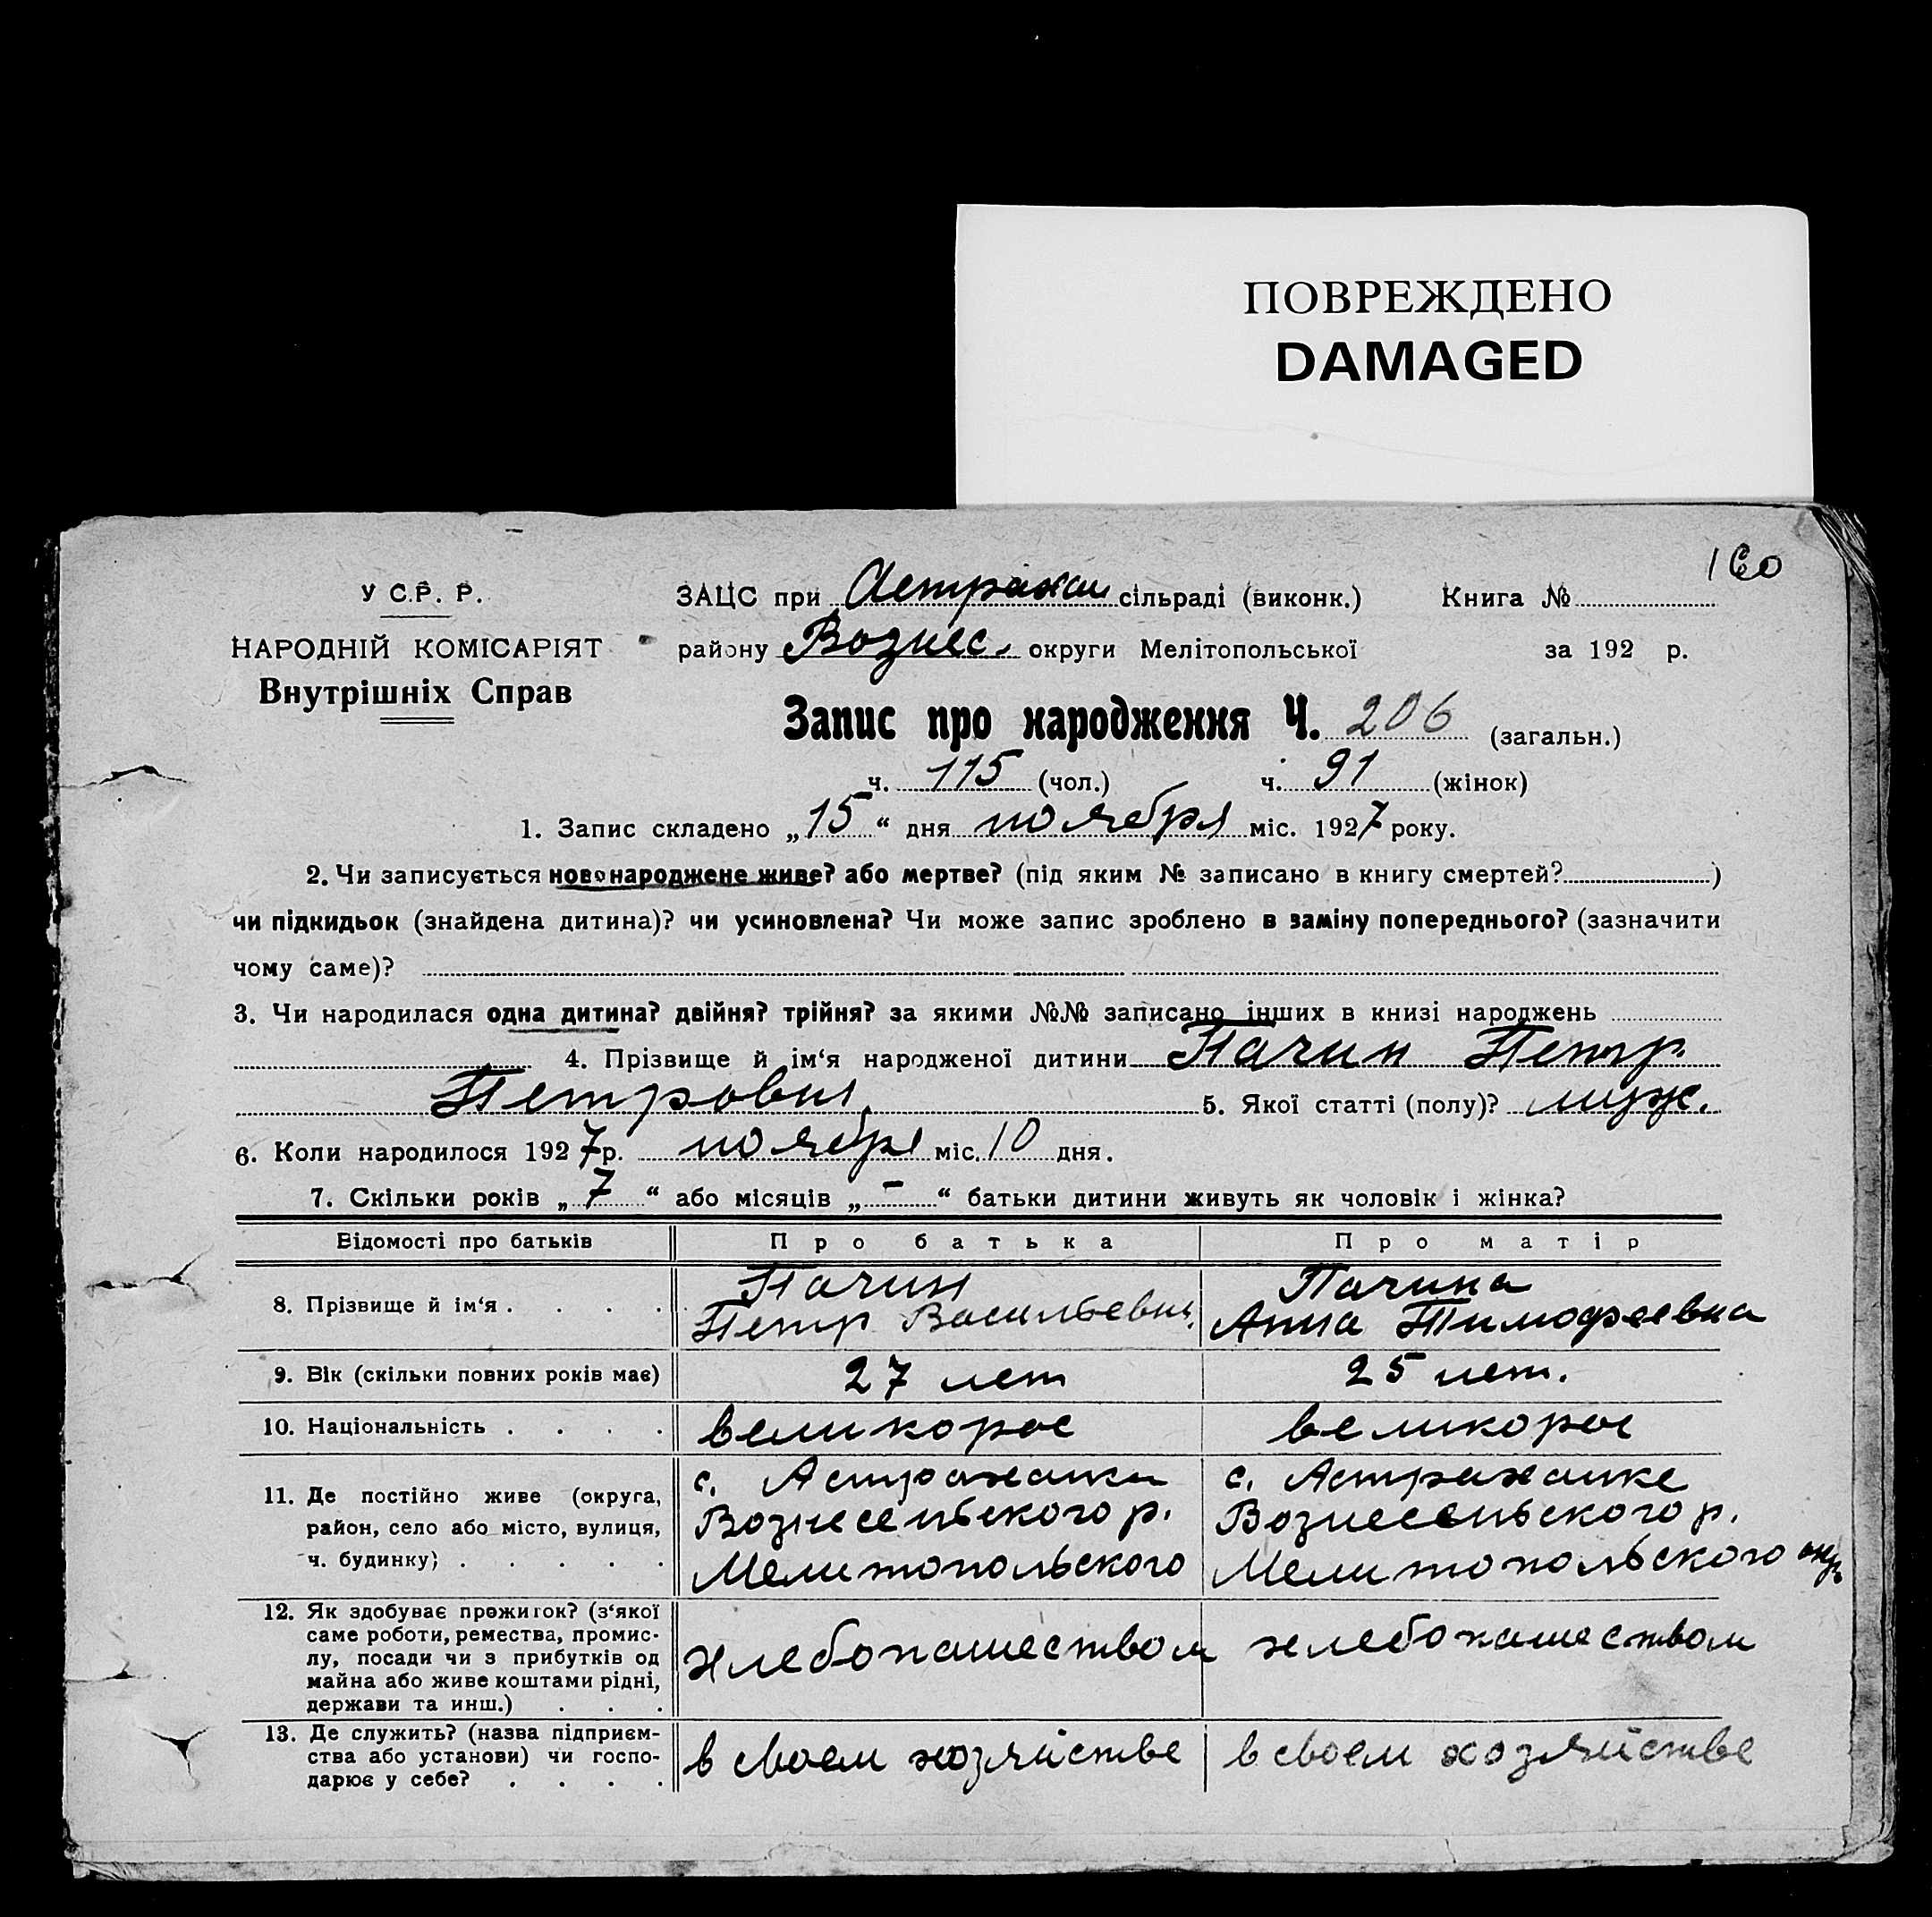 ПОВРЕЖДЕНО
DAMAGED
160
У С.Р. Р.
ЗАЦС при Астрахан сільраді (виконк.) Книга №
НАРОДНІЙ КОМІСАРІЯТ
району Вознес. округи Мелітопольської за 192 р.
Внутрішніх Справ
Запис про народження Ч. 206 (загальн.)
ч. 115 (чол.) ч. 91 (жінок)
1. Запис складено „15“ дня ноября міс. 1927 року.
2. Чи записується новонароджене живе? або мертве? (під яким № записано в книгу смертей? )
чи підкидьок (знайдена дитина)? чи усиновлена? Чи може запис зроблено в заміну попереднього? (зазначити
чому саме)?
3. Чи народилася одна дитина? двійня? трійня? за якими №№ записано інших в книзі народжень
4. Прізвище й ім‘я народженої дитини Пачин Петр
Петрович 5. Якої статті (полу)? муж.
6. Коли народилося 1927 р. ноября міс. 10 дня.
7. Скільки років „7“ або місяців „-“ батьки дитини живуть як чоловік і жінка?
Відомості про батьків Про батька Про матір
8. Прізвище й ім‘я . . . .
Пачин
Петр Васильевич
Пачина
Анна Тимофеевна
9. Вік (скільки повних років має) 27 лет 25 лет.
10. Національність . . . . великорос великорос
11. Де постійно живе (округа,
район, село або місто, вулиця,
ч. будинку) . . . . .
с. Астраханки
Вознесеньского р.
Мелитопольского
с. Астраханке
Вознесеньского р.
Мелитопольского окр.
12. Як здобуває прожиток? (з‘якої
саме роботи, ремества, промис-
лу, посади чи з прибутків од
майна або живе коштами рідні,
держави та инш.) . . .
хлебопашеством хлебопашеством
13. Де служить? (назва підприєм-
ства або установи) чи госпо-
дарює у себе? . . . .
в своем хозяйстве в своем хозяйстве